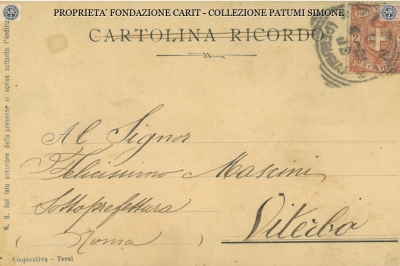 PROPRIETA' FONDAZIONE CARIT - COLLEZIONE PATUMI SIMONE
CARTOLINA RICORDO
N. B. Sul lato anteriore della presente si scrive soltanto l'indirizzo
Al Signor
Felicissimo Mascini
Sottoprefettura
Viterbo
(Roma)
Cooperativa - Terni